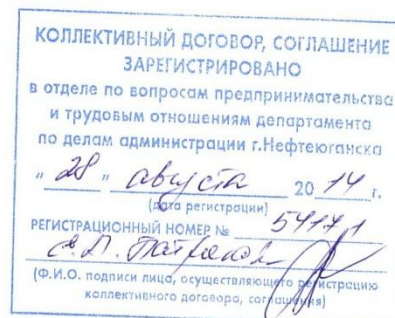 КОЛЛЕКТИВНЫЙ ДОГОВОР, СОГЛАШЕНИЕ
ЗАРЕГИСТРИРОВАНО
в отделе по вопросам предпринимательства
и трудовым отношениям департамента
по делам администрации г.Нефтеюганска
" 28 " августа 20 14 г.
(дата регистрации)
РЕГИСТРАЦИОННЫЙ НОМЕР №
(Ф.И.О. подписи лица, осуществляющего регистрацию
коллективного договора, соглашения)